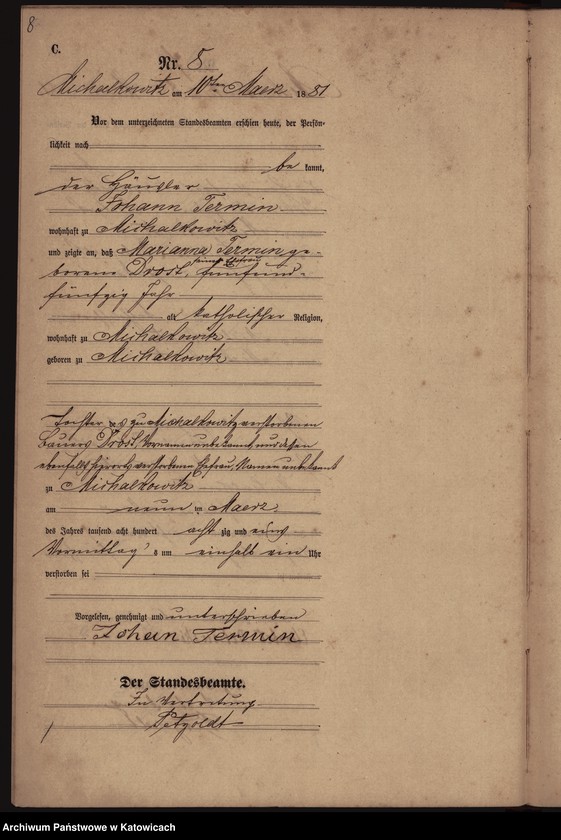 8
C.
Nr. 8
Michalkowitz am 10ten Maerz 1881
Vor dem unterzeichneten Standesbeamten erschien heute, der Persön-
lichkeit nach
be kannt,
der Häusler
Johann Termin
wohnhaft zu Michalkowitz
und zeigte an, daß Marianna Termin ge-
borene Drost, seine Ehefrau fünfund-
fünfzig Jahr
alt katholischer Religion,
wohnhaft zu Michalkowitz
geboren zu Michalkowitz
Tochter des zu Michalkowitz verstorbenen
Bauers Drost, Vornamen unbekannt und dessen
ebenfalls hierorts verstorbenen Ehefrau, Namen unbekannt
zu Michalkowitz
am neun ten Maerz
des Jahres tausend acht hundert acht zig und eins
Vormittag s um einhalb ein Uhr
verstorben sei
Vorgelesen, genehmigt und unterschrieben
Johan Termin
Der Standesbeamte.
In Vertretung
Petzoldt
Archiwum Państwowe w Katowicach